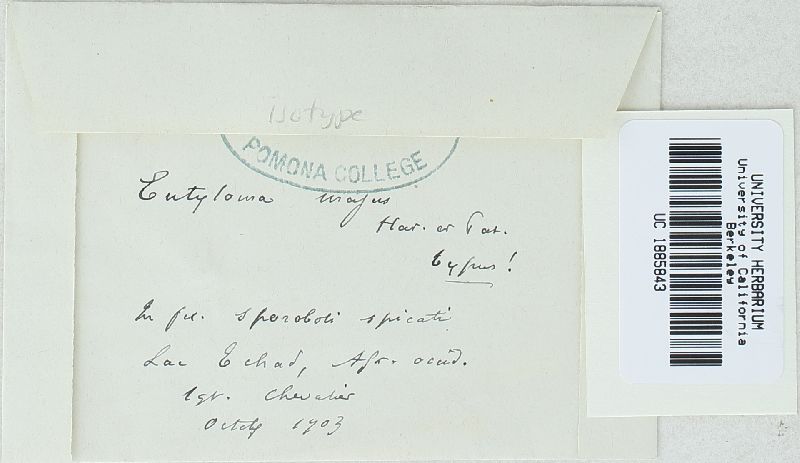 isotype
POMONA COLLEGE
Entyloma majus
Har. et Pat.
typus!
In fol. sporoboli spicati
Lac Tchad, Afr. occid.
lgt. Chevalier
Octob 1903
UNIVERSITY HERBARIUM
University of California
Berkeley
UC 1885843